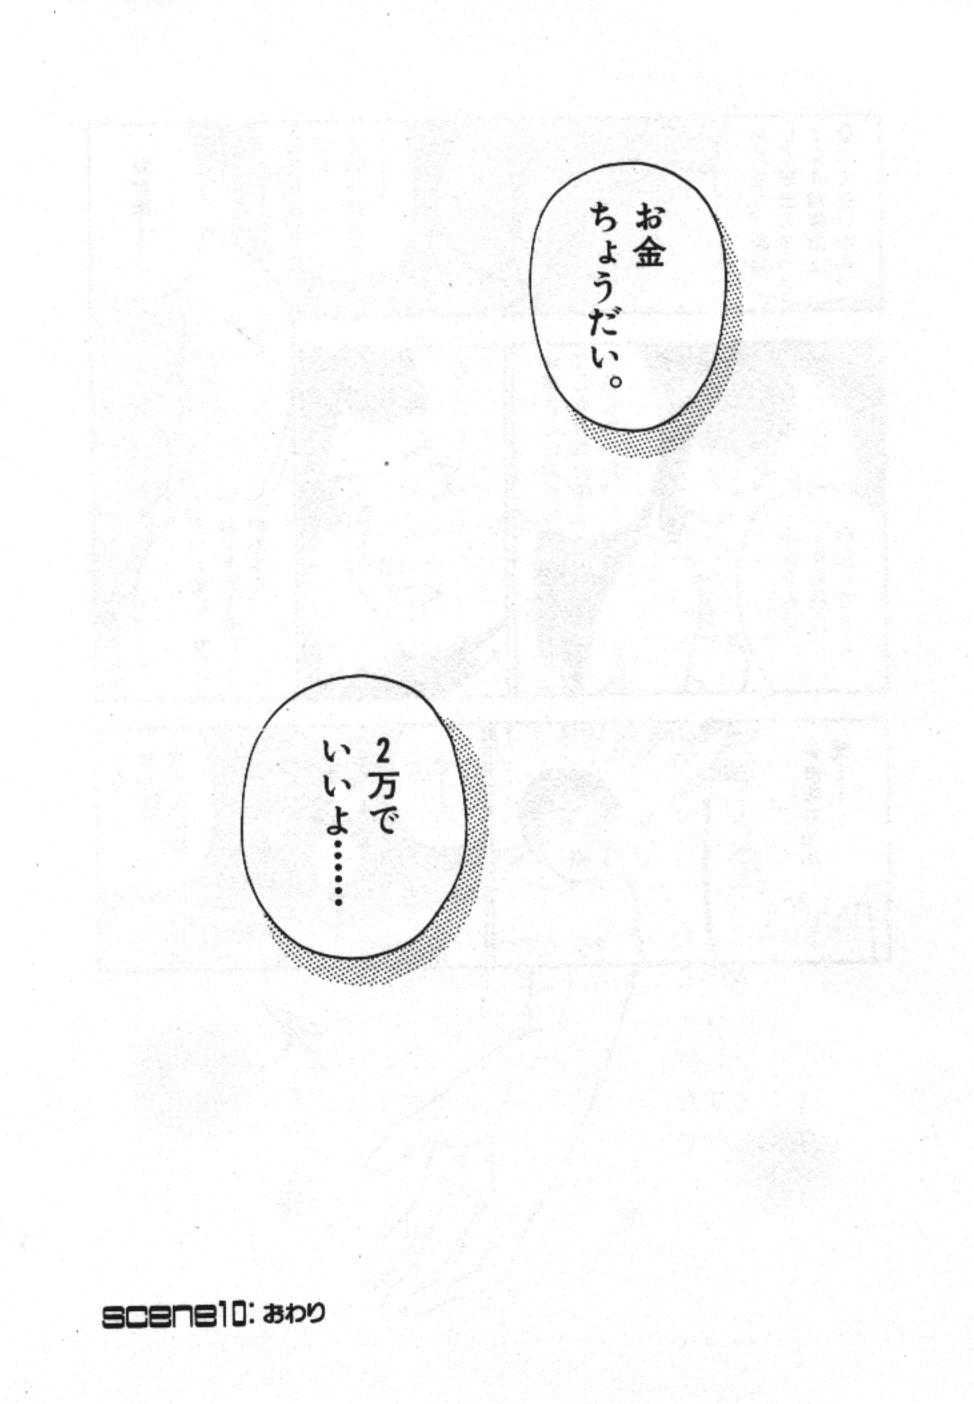 お金
ちょうだい。
2万で
いいよ……
scene10:おわり